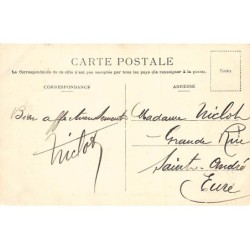 CARTE POSTALE
La Correspondance de ce côté n'est pas acceptée par tous les pays (Se renseigner à la poste).
CORRESPONDANCE
ADRESSE
Bien affectueusement
Niclot
Madame Niclot
Grande Rue
Saint-André
Eure